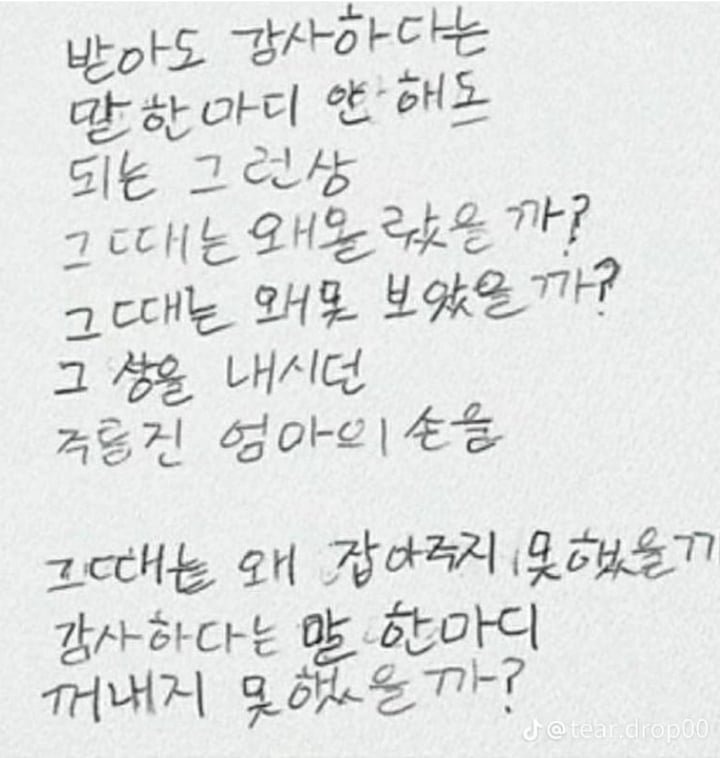 받아도 감사하다는
말 한마디 안 해도
되는 그런상
그때는 왜몰랐을까?
그때는 왜못 보았을까?
그 상을 내시던
주름진 엄마의 손을
그때는 왜 잡아주지 못했을까
감사하다는 말 한마디
꺼내지 못했을까?
@tear.drop00